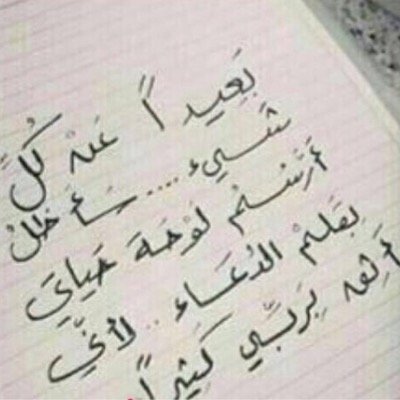 بَعِيداً عَنْ كُلِّ
شَيءٍ .... سَأَظَلُ
أَرْسُمُ لَوْحَةَ حَيَاتِي
بِقَلَمْ الدُعَاء .. لأنِّي
أَثِقُ بِرَبِّي كَثِيراً